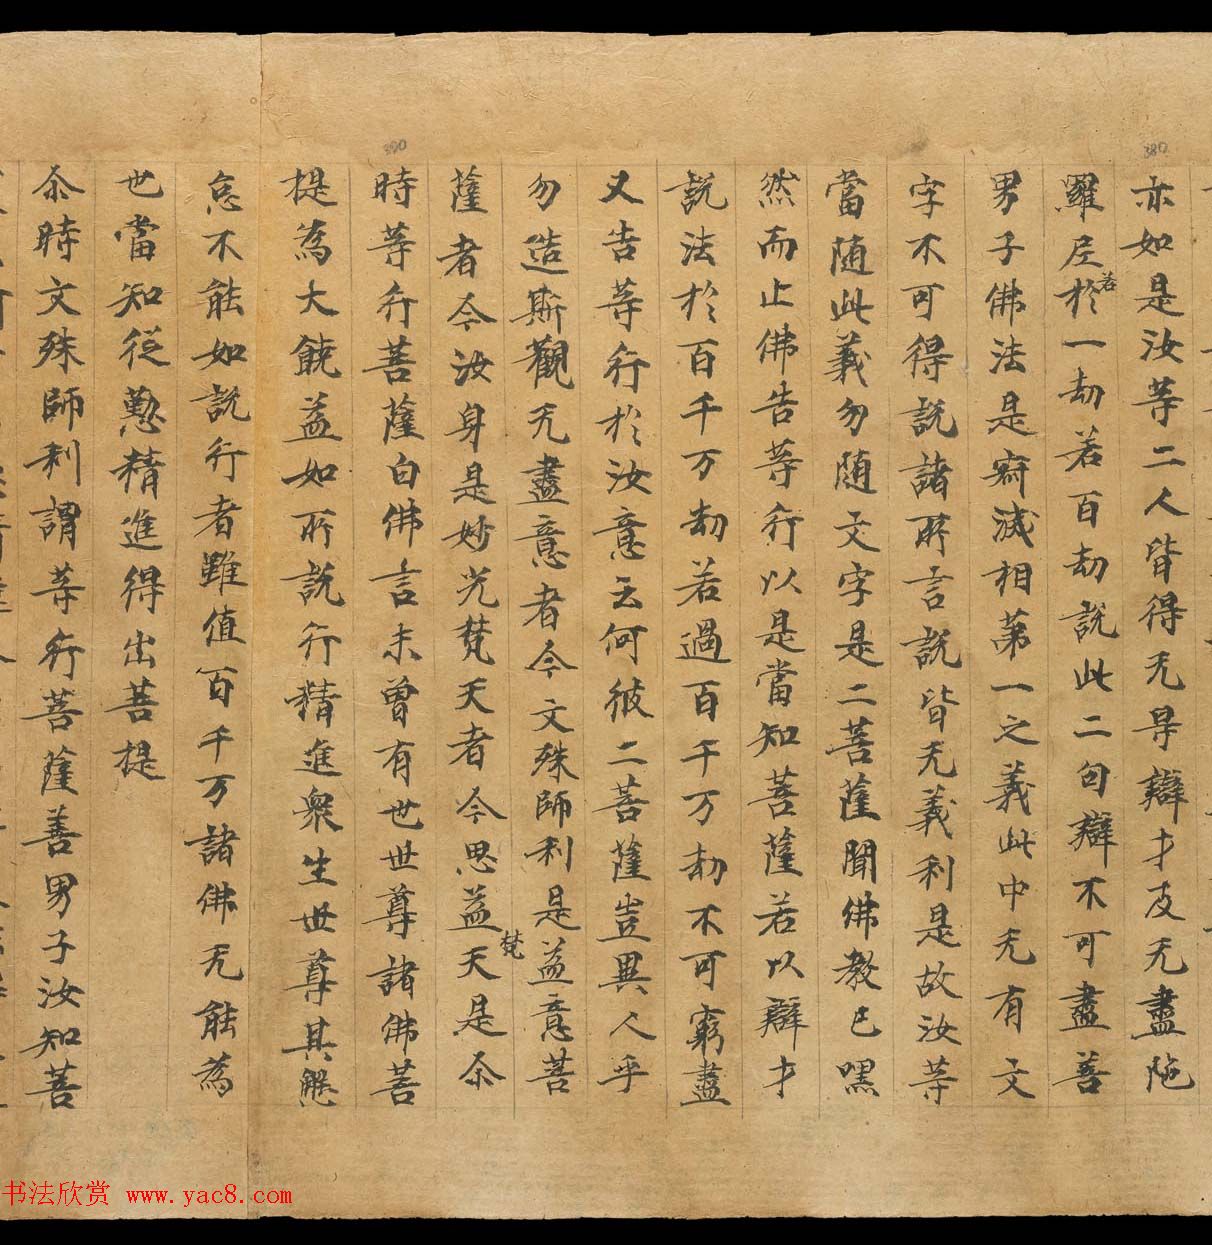 亦如是汝等二人皆得无导辯才及无盡陁
羅尼於若一劫若百劫說此二句辯不可盡善
男子佛法是𡨋滅相第一之義此中无有文
字不可得說諸所言說皆无義利是故汝等
當随此義勿随文字是二菩薩聞佛教已嘿
然而止佛告等行以是當知菩薩若以辯才
說法於百千万劫若過百千万劫不可窮盡
又告等行於汝意云何彼二菩薩豈異人乎
勿造斯觀无盡意者今文殊師利是益意菩
薩者今汝身是妙光梵天者今思益梵天是尒
時等行菩薩白佛言未曾有世世尊諸佛菩
提為大饒益如所說行精進衆生世尊其懈
怠不能如說行者雖值百千万諸佛无能為
也當知從懃精進得出菩提
尒時文殊師利謂等行菩薩善男子汝知菩
390
380
书法欣赏 www.yac8.com